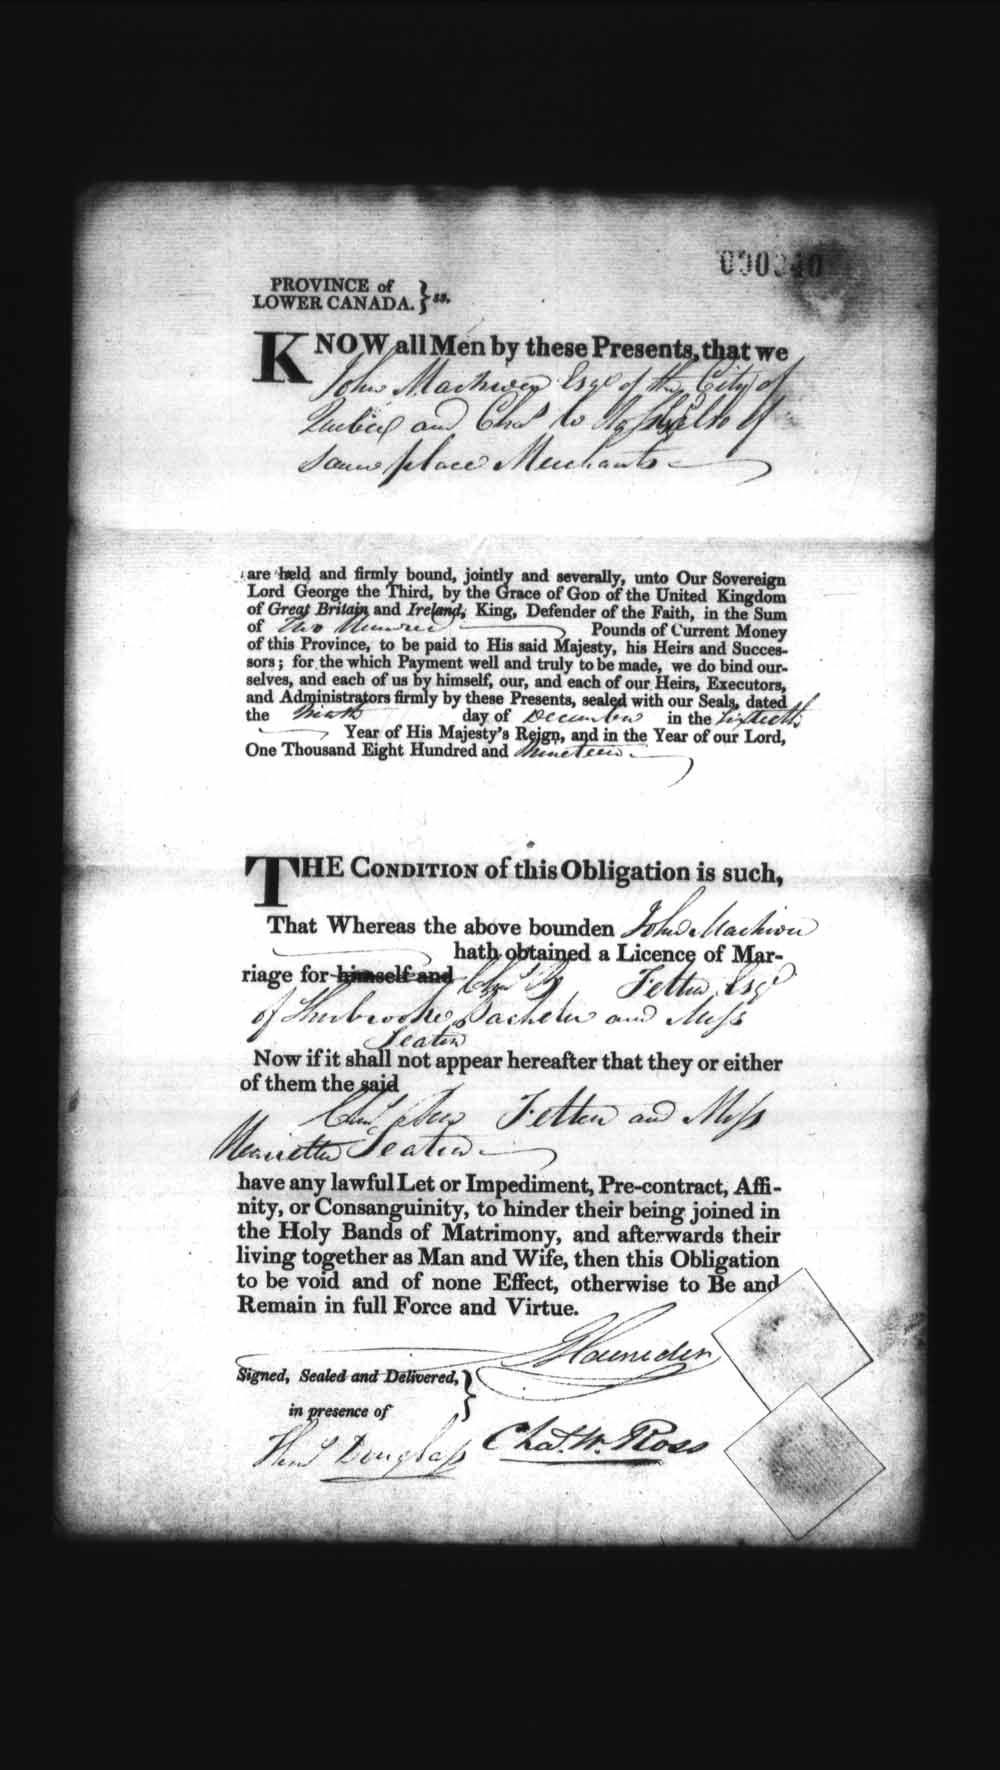 PROVINCE of
LOWER CANADA. } ss.
KNOW all Men by these Presents, that we
John Esqr of the City of
Quebec and Chas
same place Merchants
are held and firmly bound, jointly and severally, unto Our Sovereign
Lord George the Third, by the Grace of GOD of the United Kingdom
of Great Britain and Ireland, King, Defender of the Faith, in the Sum
of Two Hundred Pounds of Current Money
of this Province, to be paid to His said Majesty, his Heirs and Succes-
sors; for the which Payment well and truly to be made, we do bind our-
selves, and each of us by himself, our, and each of our Heirs, Executors,
and Administrators firmly by these Presents, sealed with our Seals, dated
the Ninth day of December in the Sixtieth
Year of His Majesty's Reign, and in the Year of our Lord,
One Thousand Eight Hundred and Nineteen
THE CONDITION of this Obligation is such,
That Whereas the above bounden John
hath obtained a Licence of Mar-
riage for himself and Esqr
of Sherbrooke Bachelor and Miss
Now if it shall not appear hereafter that they or either
of them the said
and Miss
Henrietta
have any lawful Let or Impediment, Pre-contract, Affi-
nity, or Consanguinity, to hinder their being joined in
the Holy Bands of Matrimony, and afterwards their
living together as Man and Wife, then this Obligation
to be void and of none Effect, otherwise to Be and
Remain in full Force and Virtue.
Signed, Sealed and Delivered, }
in presence of
Douglass Chas. W. Ross